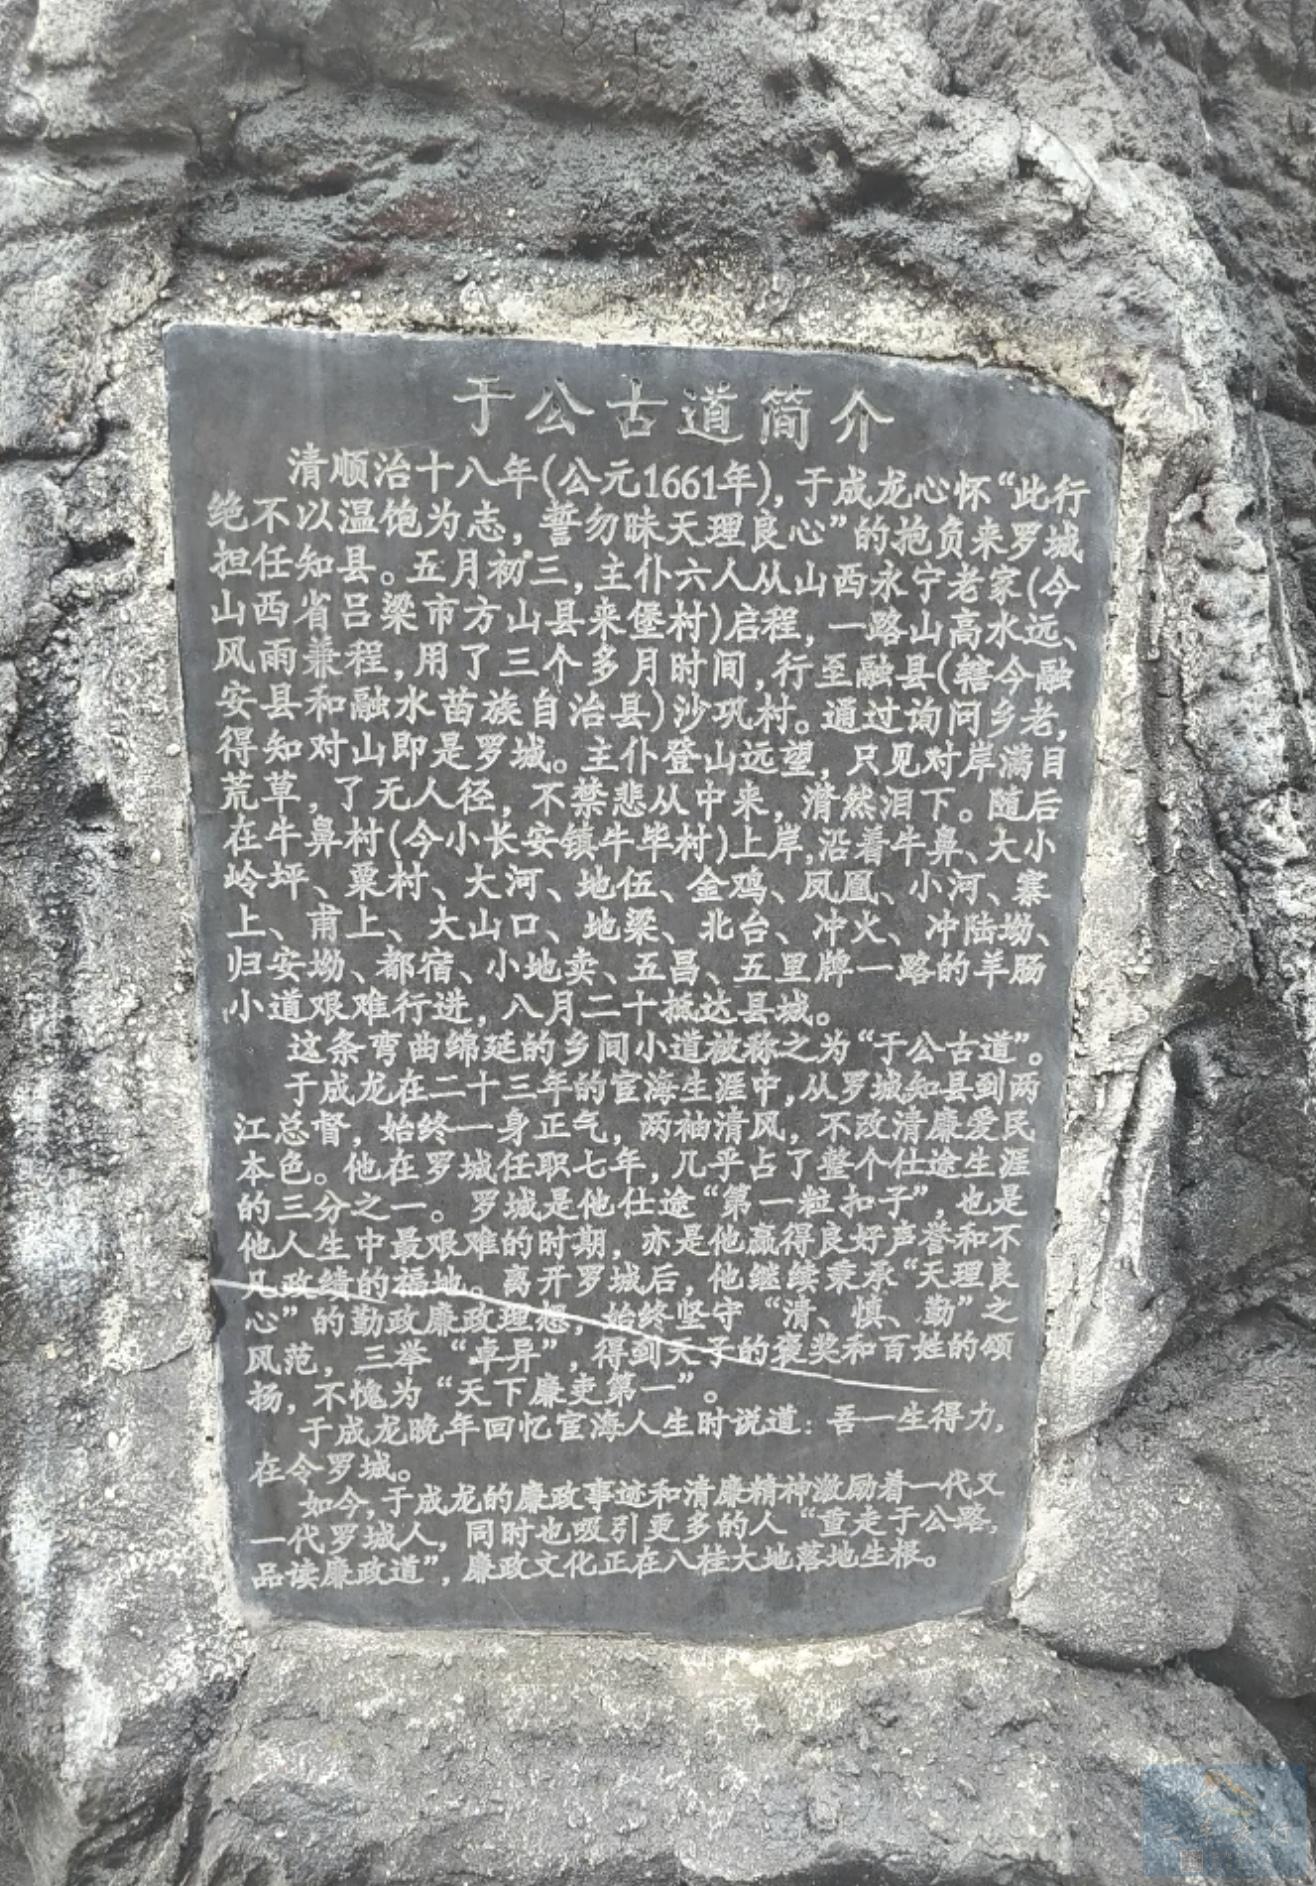 于公古道简介
清顺治十八年(公元1661年)，于成龙心怀“此行
绝不以温饱为志，誓勿昧天理良心”的抱负来罗城
担任知县。五月初三，主仆六人从山西永宁老家(今
山西省吕梁市方山县来堡村)启程，一路山高水远、
风雨兼程，用了三个多月时间，行至融县(辖今融
安县和融水苗族自治县)沙巩村。通过询问乡老，
得知对山即是罗城。主仆登山远望，只见对岸满目
荒草，了无人径，不禁悲从中来，潸然泪下。随后
在牛鼻村(今小长安镇牛毕村)上岸，沿着牛鼻、大小
岭坪、粟村、大河、地伍、金鸡、凤凰、小河、寨
上、甫上、大山口、地梁、北台、冲火、冲陆坳、
归安坳、都宿、小地卖、五昌、五里牌一路的羊肠
小道艰难行进，八月二十抵达县城。
这条弯曲绵延的乡间小道被称之为“于公古道”。
于成龙在二十三年的宦海生涯中，从罗城知县到两
江总督，始终一身正气，两袖清风，不改清廉爱民
本色。他在罗城任职七年，几乎占了整个仕途生涯
的三分之一。罗城是他仕途“第一粒扣子”，也是
他人生中最艰难的时期，亦是他赢得良好声誉和不
凡政绩的福地。离开罗城后，他继续秉承“天理良
心”的勤政廉政理念，始终坚守“清、慎、勤”之
风范，三举“卓异”，得到天子的褒奖和百姓的颂
扬，不愧为“天下廉吏第一”。
于成龙晚年回忆宦海人生时说道：吾一生得力，
在令罗城。
如今，于成龙的廉政事迹和清廉精神激励着一代又
一代罗城人，同时也吸引更多的人“重走于公路，
品读廉政道”，廉政文化正在八桂大地落地生根。